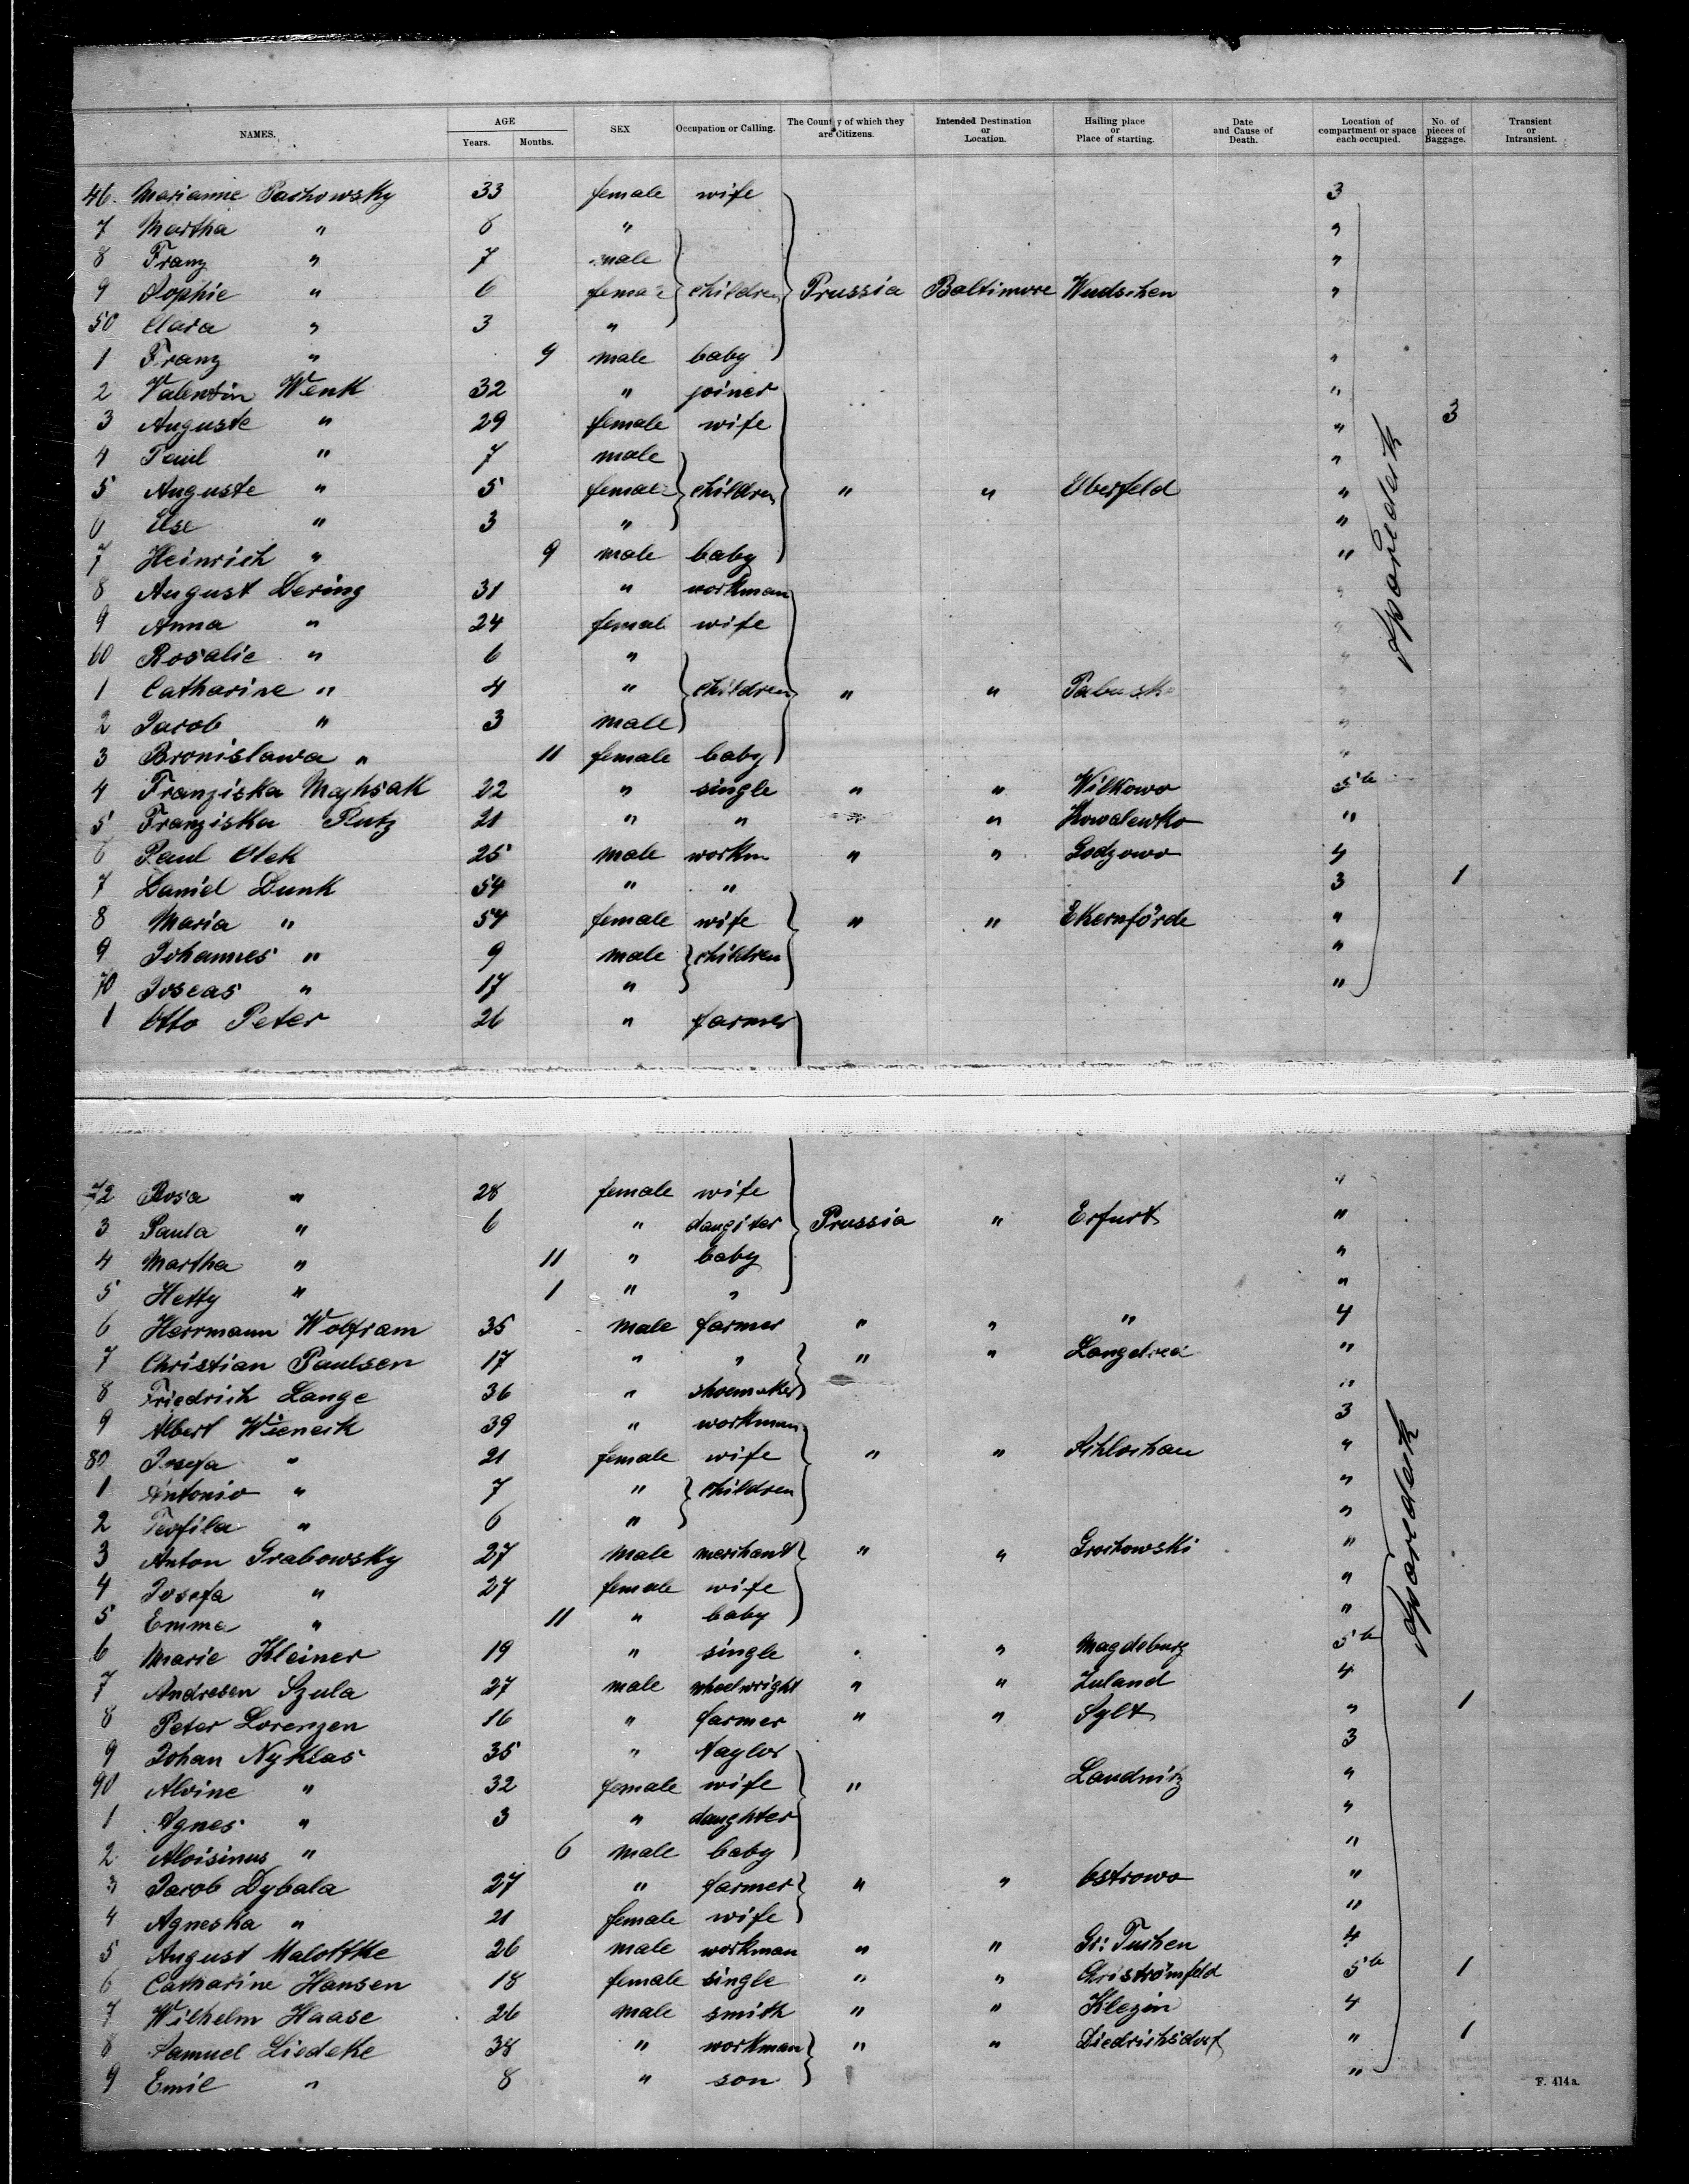 NAMES. AGE Years. Months. SEX Occupation or Calling. The Country of which they are Citizens. Intended Destination or Location. Hailing place or Place of starting. Date and Cause of Death. Location of compartment or space each occupied. No. of pieces of Baggage. Transient or Intransient.
46. Marianne Pachowsky 33 female wife 3
7 Martha " 8 " "
8 Franz " 7 male "
9 Sophie " 6 female children Prussia Baltimore Wudschen "
50 Clara " 3 "
1 Franz " 9 male baby "
2 Valentin Wenk 32 " joiner "
3 Auguste " 29 female wife " 3
4 Paul " 7 male "
5 Auguste " 5 female children " " Elberfeld "
6 Else " 3 " "
7 Heinrich " 9 male baby "
8 August Dering 31 " workman "
9 Anna " 24 female wife "
60 Rosalie " 6 " "
1 Catharine " 4 " children " " "
2 Jacob " 3 male "
3 Bronislawa " 11 female baby "
4 Franziska Majhsak 22 " single " " Wilkowo 5b
5 Franziska Rutz 21 " " " " Kowalewko "
6 Paul Otek 25 male workm " " Godzowo 4
7 Daniel Dunk 54 " " 3 1
8 Maria " 54 female wife " " Ekernförde "
9 Johannes " 9 male children "
70 Joseas " 17 " "
1 Otto Peter 26 " farmer
72 Rosa " 28 female wife "
3 Paula " 6 " daughter Prussia " Erfurt "
4 Martha " 11 " baby "
5 Hetty " 1 " " "
6 Herrmann Wolfram 35 male farmer " " " 4
7 Christian Paulsen 17 " " " " "
8 Friedrich Lange 36 " shoemaker "
9 Albert Wienesk 39 " workman 3
80 Josefa " 21 female wife " " Schlochau "
1 Antonio " 7 " children "
2 Teofila " 6 " "
3 Anton Grabowsky 27 male merchant " " Grochowski "
4 Josefa " 27 female wife "
5 Emma " 11 " baby "
6 Marie Kleiner 19 " single " " Magdeburg 5b
7 Andresen Szula 27 male wheelwright " " Juland 4
8 Peter Lorenzen 16 " farmer " " Sylt " 1
9 Johan Nyklas 35 " taylor 3
90 Alvine " 32 female wife " Landnitz "
1 Agnes " 3 " daughter "
2 Aloisinus " 6 male baby "
3 Jacob Dybala 27 " farmer " " Ostrowo "
4 Agneska " 21 female wife "
5 August Malottke 26 male workman " " Gr: Tuchen 4
6 Catharine Hansen 18 female single " " Christrömfeld 5b 1
7 Wilhelm Haase 26 male smith " " Klezin 4
8 Samuel Liedeke 38 " workman " " Diedrichsdorf " 1
9 Emil " 8 " son "
F. 414a.